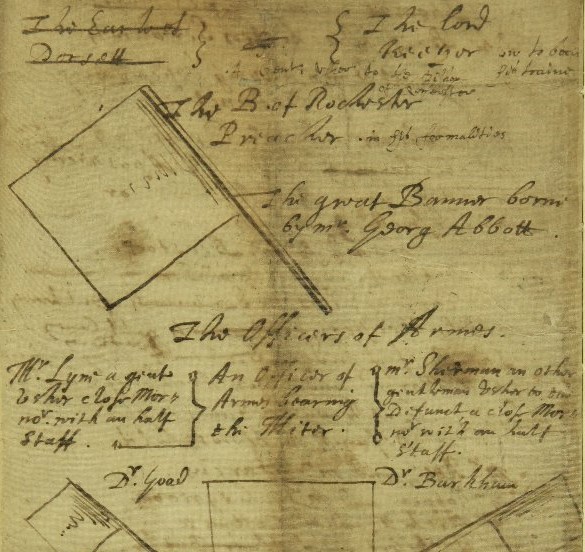 The Earle of
Dorsett
The lord
Keeper
A gentl. usher to the Bishop
of Rochester
The B. of Rochester
Preacher in his formalities
The great Banner borne
by mr. Georg Abbott.
The Officers of Armes.
Mr. Lyme a gent
Usher close Mor
nor. with an half
Staff.
An Officer of
Armes bearing
the Miter.
mr. Sherman an other
gentleman Usher to the
Difunct a close Mor
nor with an half
Staff.
Dr. Goad
Dr. Barkham